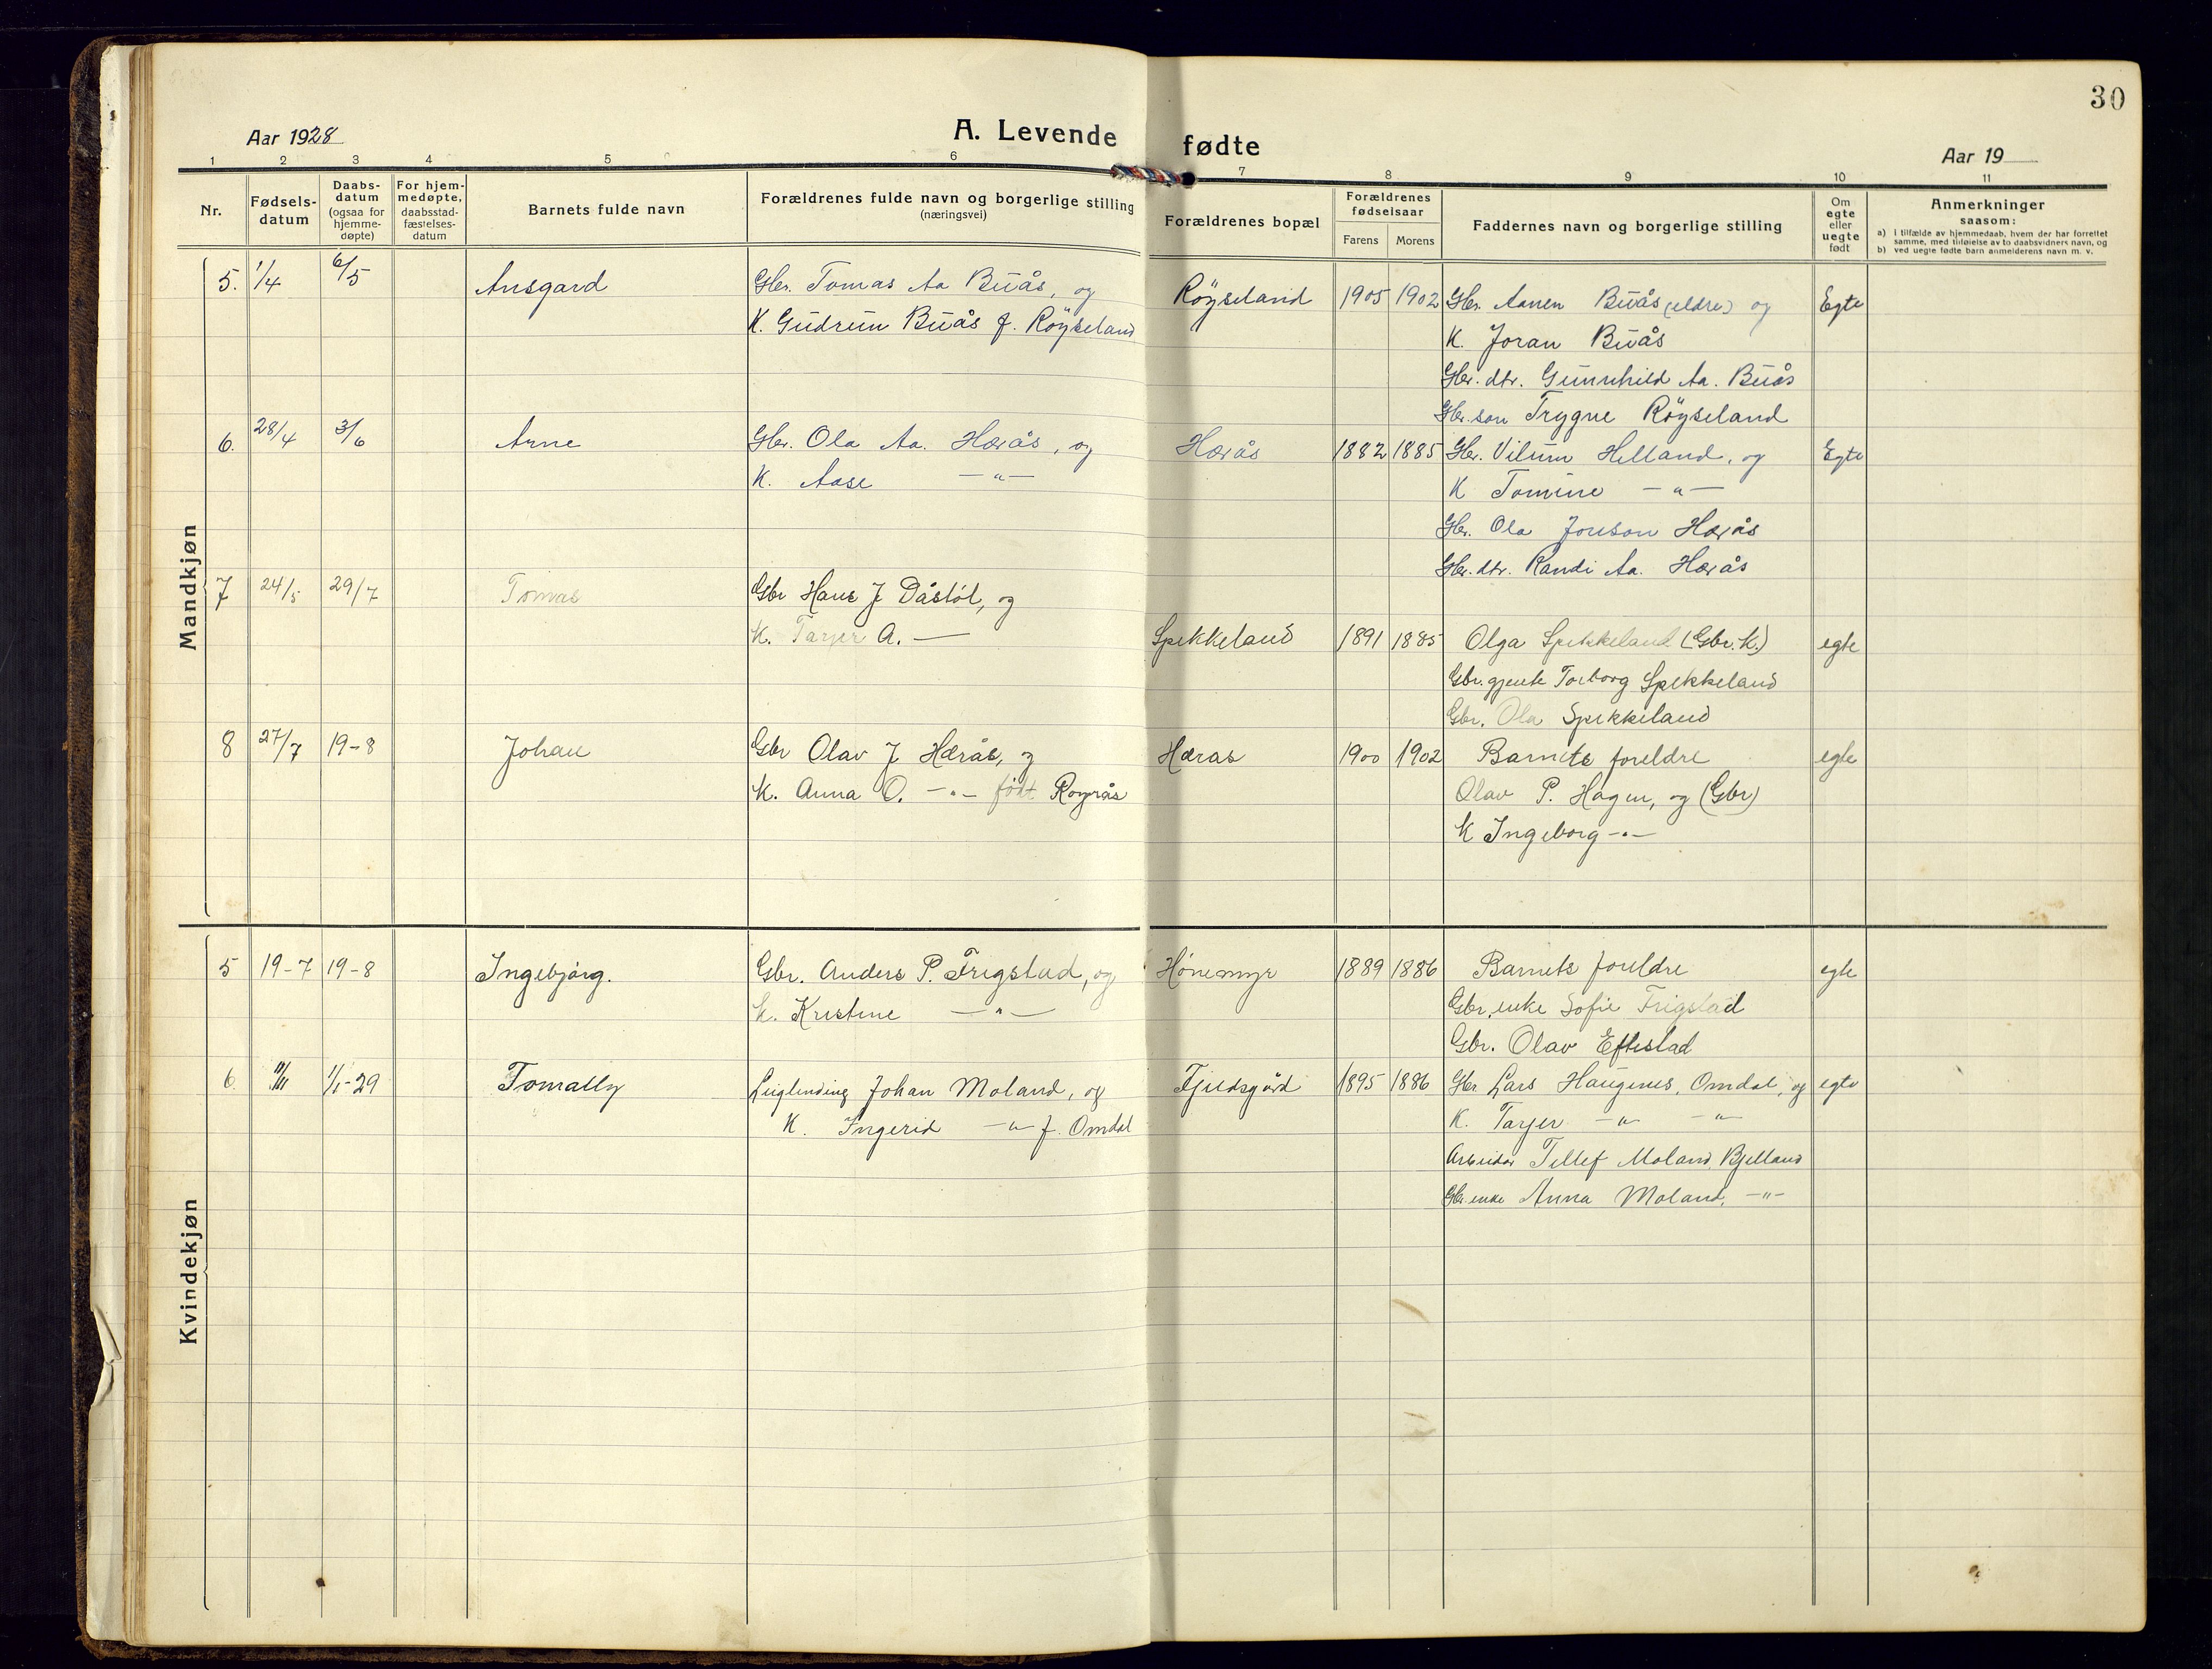 30
Aar 1928
A. Levende fødte
Aar 19
1 2 3 4 5 6 7 8 9 10 11
Nr.
Fødsels-
datum
Daabs-
datum
(ogsaa for
hjemme-
døpte)
For hjem-
medøpte,
daabsstad-
fæstelses-
datum
Barnets fulde navn
Forældrenes fulde navn og borgerlige stilling
(næringsvei)
Forældrenes bopæl
Forældrenes
fødselsaar
Farens Morens
Faddernes navn og borgerlige stilling
Om
egte
eller
uegte
født
Anmerkninger
saasom:
a) i tilfælde av hjemmedaab, hvem der har forrettet
samme, med tilføielse av to daabsvidners navn, og
b) ved uegte fødte barn anmelderens navn m. v.
Mandkjøn
5. 1/4 6/5 Ansgard Gbr. Tomas Aa Buås, og Röyseland 1905 1902 Gbr. Aanen Buås (eldre) og Egte
K. Gudrun Buås f. Röyseland K. Joran Buås
Gbr. dtr. Gunnhild Aa. Buås
Gbr. son Trygve Röyseland
6. 28/4 3/6 Arne Gbr. Ola Aa. Hærås, og Hærås 1882 1885 Gbr. Vilum Helland, og Egte
K. Aase —"— K Tomine —"—
Gbr. Ola Jonson Hærås
Gbr. dtr. Randi Aa. Hærås
7 24/5 29/7 Tomas Gbr Hans J Dåstöl, og
K. Tarjer A. — Spekkeland 1891 1885 Olga Spekkeland (Gbr. K.) egte
Gbr. gjente Torborg Spekkeland
Gbr. Ola Spekkeland
8 27/7 19-8 Johan Gbr Olav J Hærås, og Hæras 1900 1902 Barnets foreldre egte
K. Anna O. -"- født Røyrås Olav P. Hagen, og (Gbr)
K Ingeborg -"-
Kvindekjøn
5 19-7 19-8 Ingebjørg. Gbr. Anders P. Frigstad, og Hønemyr 1889 1886 Barnets foreldre egte
K. Kristine —"— Gbr. enke Sofie Frigstad
Gbr. Olav Eftestad
6. 11/11 1/1-29 Tomally Leiglending Johan Moland, og Fjudsgård 1895 1886 Gbr Lars Haugenes, Omdal, og egte
K. Ingerid —"— f. Omdal K. Tarjer —"— —"—
Arbeidar Tellef Moland, Bjelland
Gbr. enke Anna Moland, —"—